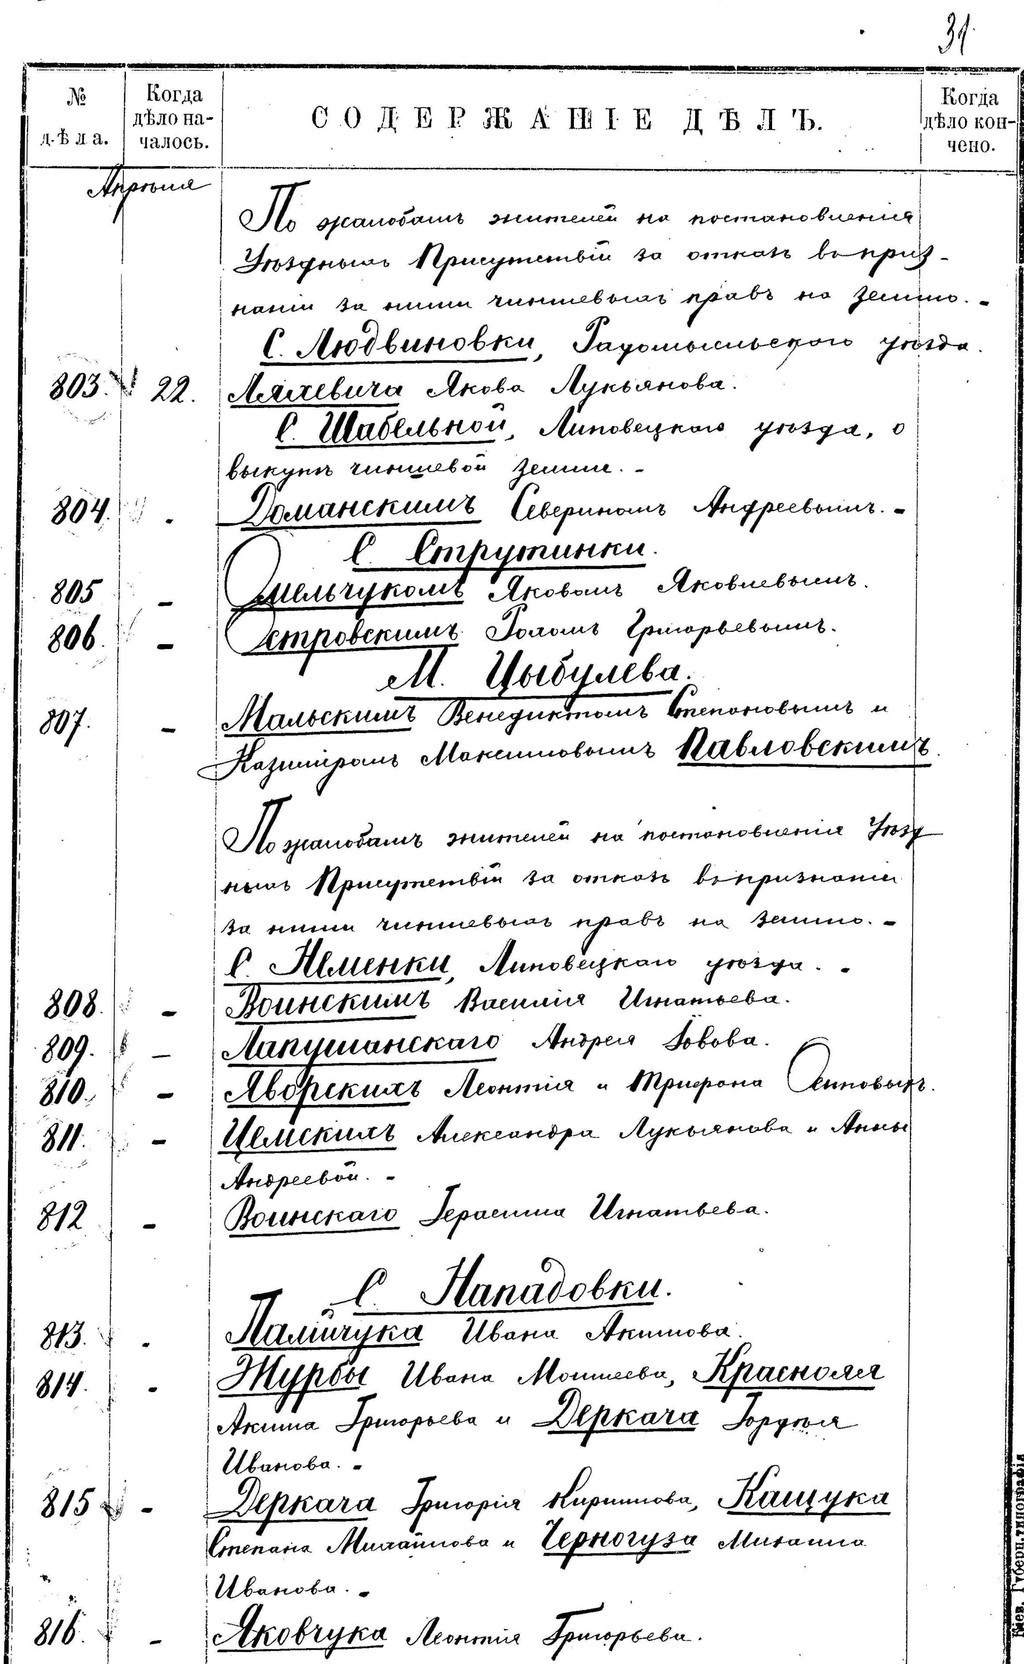 31
№ дѣла.
Когда дѣло на-чалось.
СОДЕРЖАНІЕ ДѢЛЪ.
Когда дѣло кон-чено.
Апрѣля
По жалобамъ жителей на постановленія
Уѣздныхъ Присутствій за отказъ въ приз-
наніи за ними чиншевыхъ правъ на землю. -
С. Людвиновки, Радомысльского уѣзда.
803. 22. Ляхевича Якова Лукьянова.
С. Шабельной, Липовецкаго уѣзда, о
выкупѣ чиншевой земли. -
804. Доманскимъ Севериномъ Андреевымъ. -
С. Струтинки.
805 - Омельчукомъ Яковомъ Яковлевымъ.
806. - Островскимъ Романомъ Григорьевымъ.
М. Цыбулева.
807. - Мальскимъ Венедиктомъ Степановымъ и
Казимиромъ Максимовымъ Павловскимъ.
По жалобамъ жителей на постановленія Уѣзд
ныхъ Присутствій за отказъ въ признаніи
за ними чиншевыхъ правъ на землю. -
С. Нѣменки, Липовецкаго уѣзда. -
808. - Воинскимъ Василія Игнатьева.
809. - Лапушанскаго Андрея Іовова.
810. - Яворскихъ Леонтія и Трифона Осиповыхъ.
811. - Цемскихъ Александра Лукьянова и Анны
Андреевой. -
812 - Воинскаго Герасима Игнатьева.
С. Нападовки.
813. Палійчука Ивана Акимова.
814. Журбы Ивана Моисеева, Красноляя
Акима Григорьева и Деркача Гордѣя
Иванова. -
815 - Деркача Григорія Кирилова, Кащука
Степана Михайлова и Черногуза Михаила
Иванова. -
816. - Яковчука Леонтія Григорьева.
Кіев. Губерн. типографія